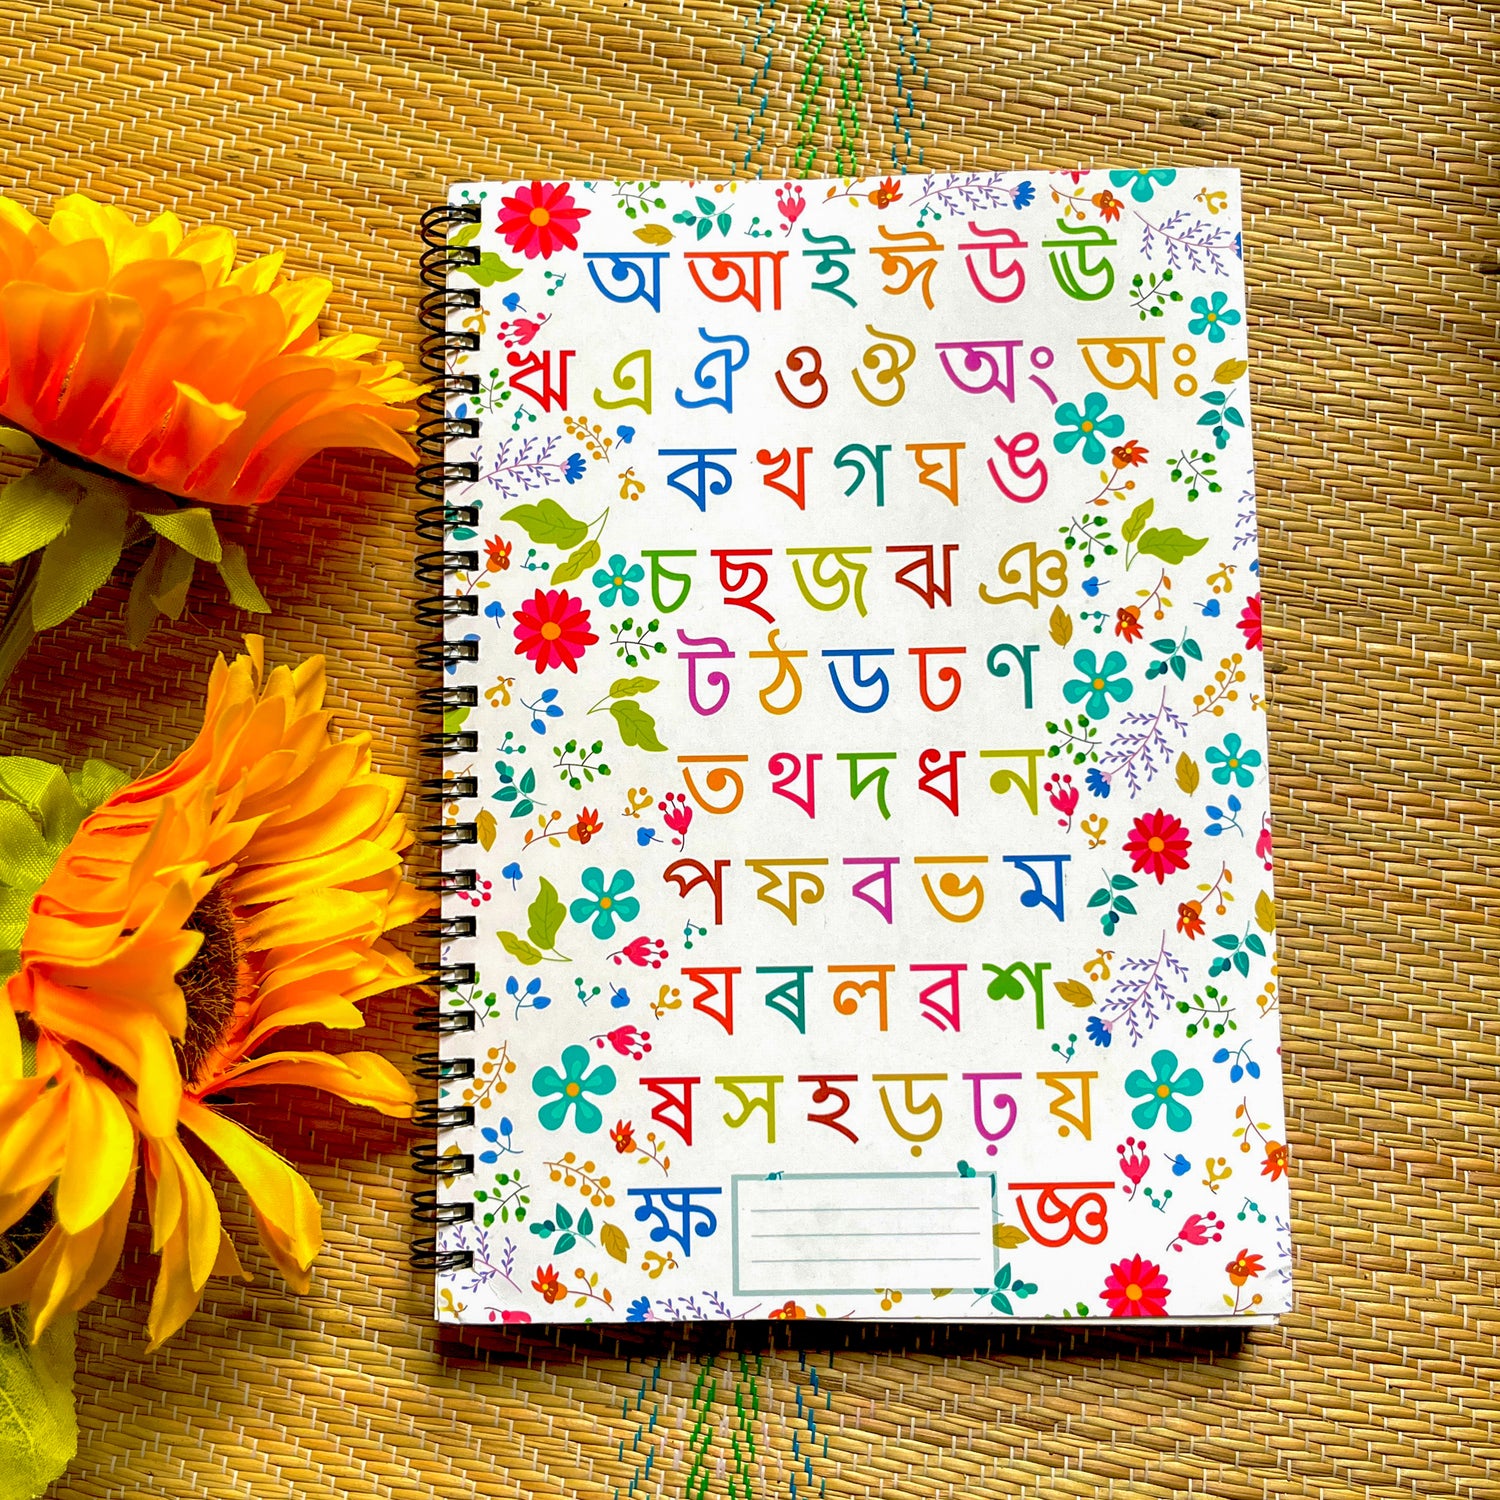 অ আ ই ঈ উ ঊ
ঋ এ ঐ ও ঔ অং অঃ
ক খ গ ঘ ঙ
চ ছ জ ঝ ঞ
ট ঠ ড ঢ ণ
ত থ দ ধ ন
প ফ ব ভ ম
য ৰ ল ৱ শ
ষ স হ ড় ঢ় য়
ক্ষ জ্ঞ